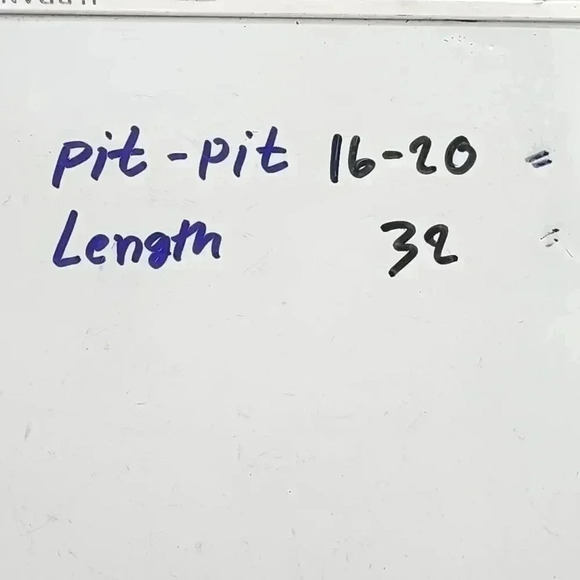 pit - pit 16-20 "
Length 32